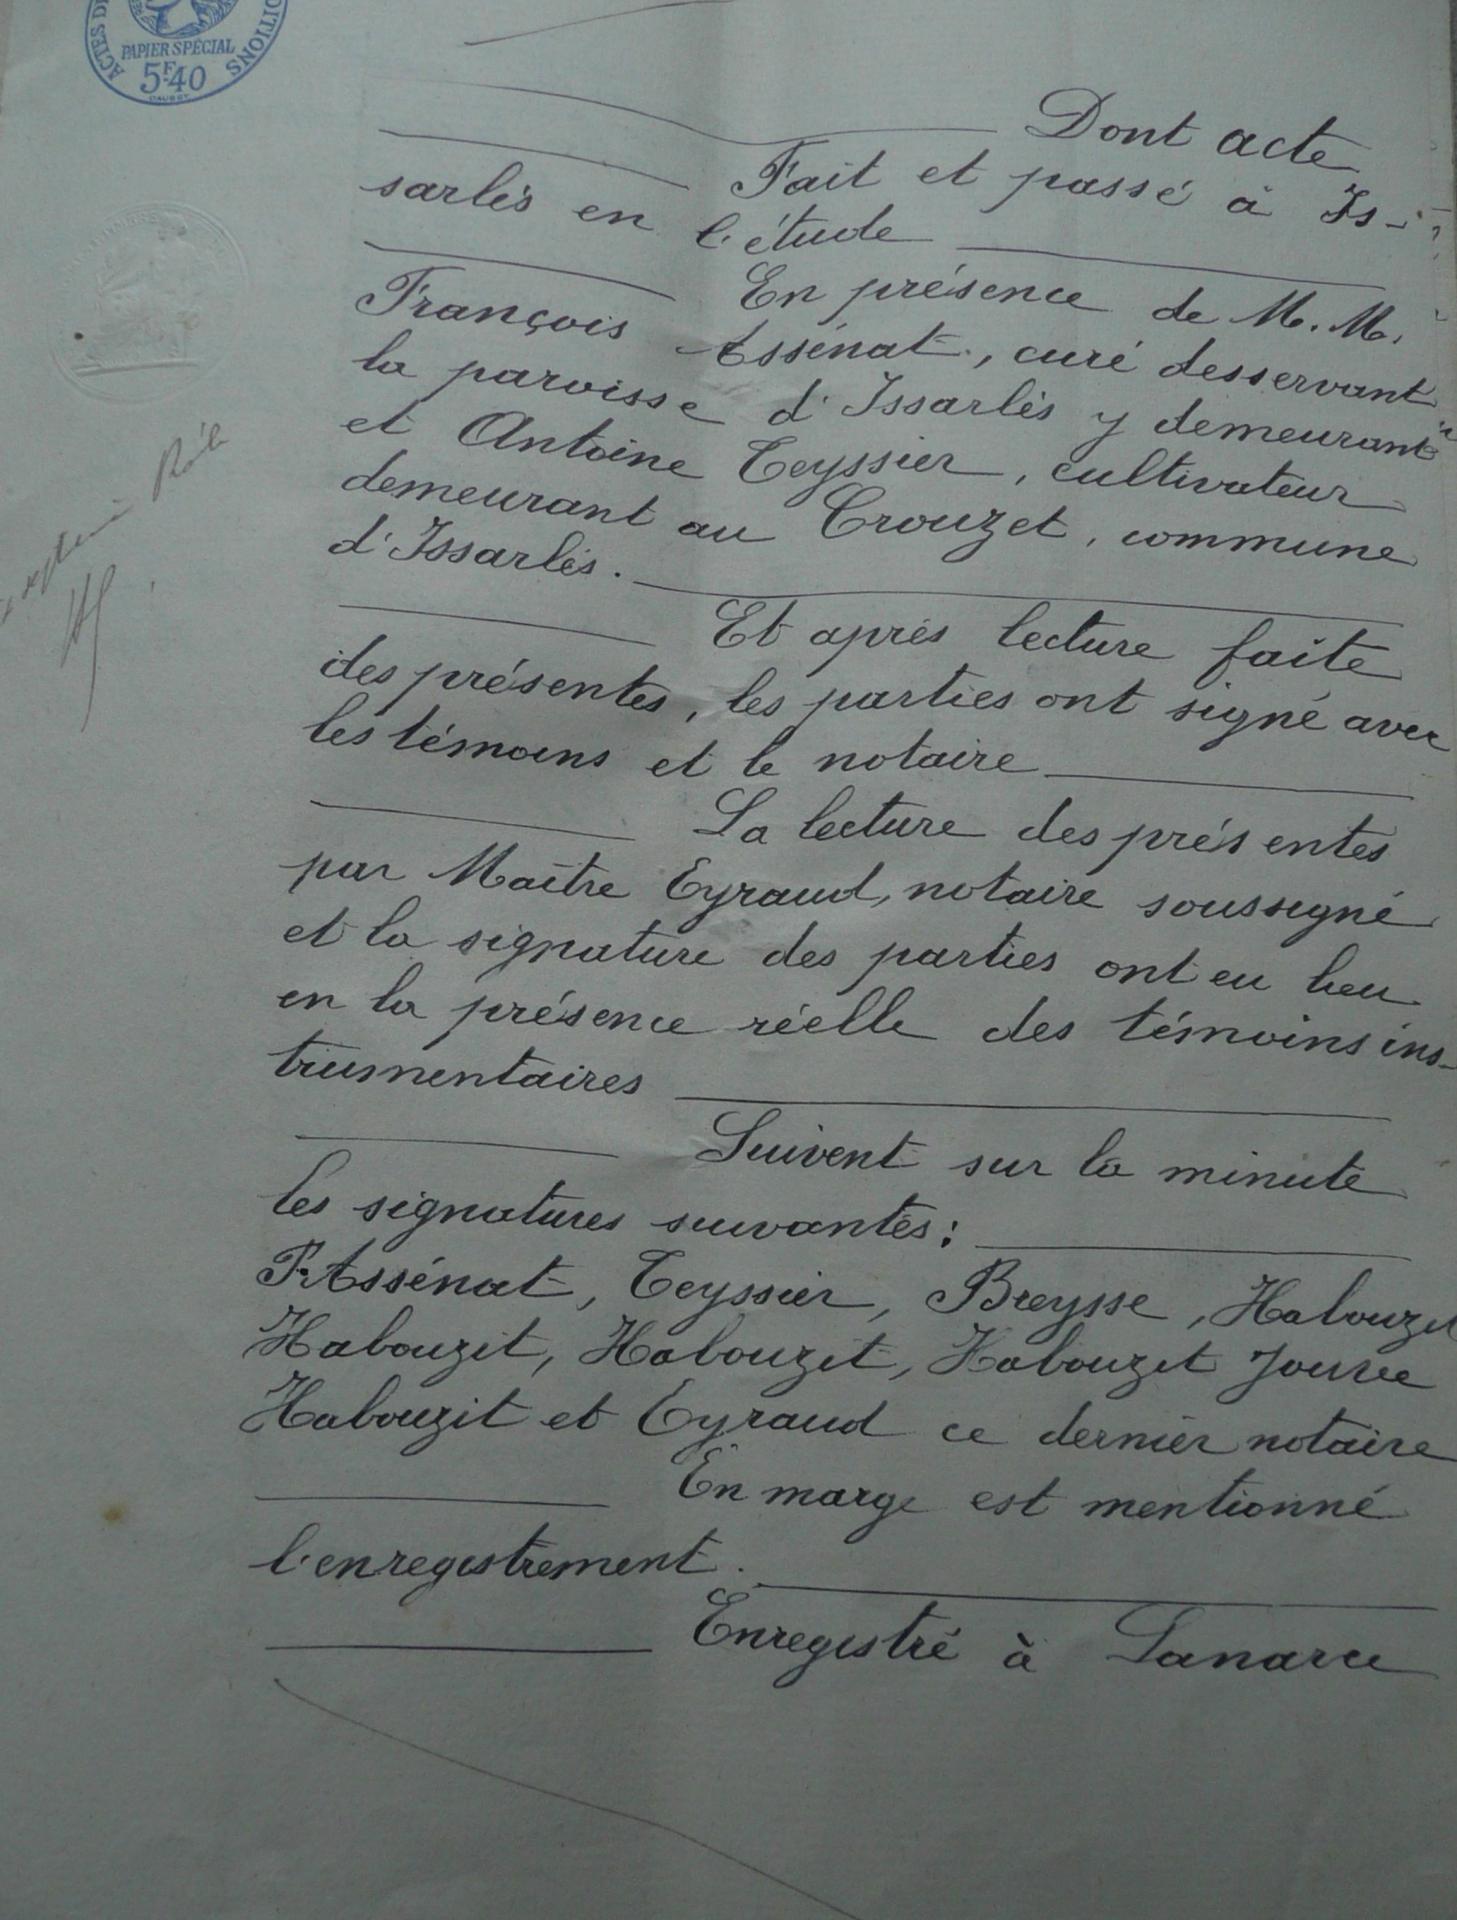 ACTES DE
DITIONS
PAPIER SPÉCIAL
5F40
Dont acte
Fait et passé à Is-
sarlès en l'étude
En présence de M. M.
François Assénat, curé desservant
la paroisse d'Issarlès y demeurant
et Antoine Teyssier, cultivateur
demeurant au Crouzet, commune
d'Issarlès.
Et après lecture faite
des présentes, les parties ont signé avec
les témoins et le notaire
La lecture des présentes
par Maître Eyraud, notaire soussigné
et la signature des parties ont eu lieu
en la présence réelle des témoins ins-
trumentaires
Suivent sur la minute
les signatures suivantes:
F. Assénat, Teyssier, Breysse, Habouzit
Habouzit, Habouzit, Habouzit Jouve
Habouzit et Eyraud ce dernier notaire
En marge est mentionné
l'enregistrement.
Enregistré à Lanarce
Rôle